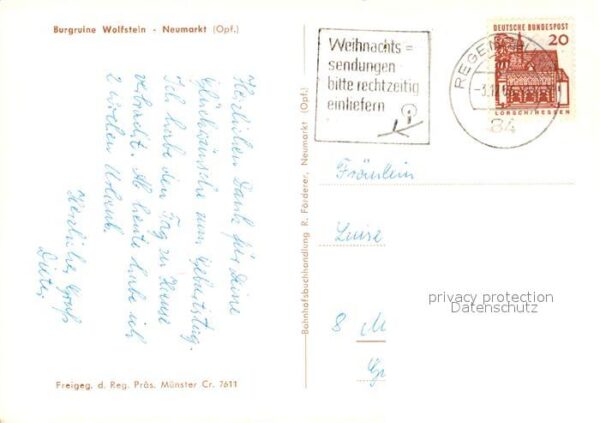 Burgruine Wolfstein - Neumarkt (Opf.)
Herzlichen Dank für Deine
Glückwünsche zum Geburtstag.
Ich habe den Tag zu Hause
verbracht. Ab heute habe ich
2 Wochen Urlaub.
Herzliche Grüße
Dieter
Freigeg. d. Reg. Präs. Münster Cr. 7611
Bahnhofsbuchhandlung R. Förderer, Neumarkt (Opf.)
Weihnachts =
sendungen
bitte rechtzeitig
einliefern
REGEN
-3.12
84
DEUTSCHE BUNDESPOST
20
LORSCH/HESSEN
Fräulein
Luise
8 M
privacy protection
Datenschutz